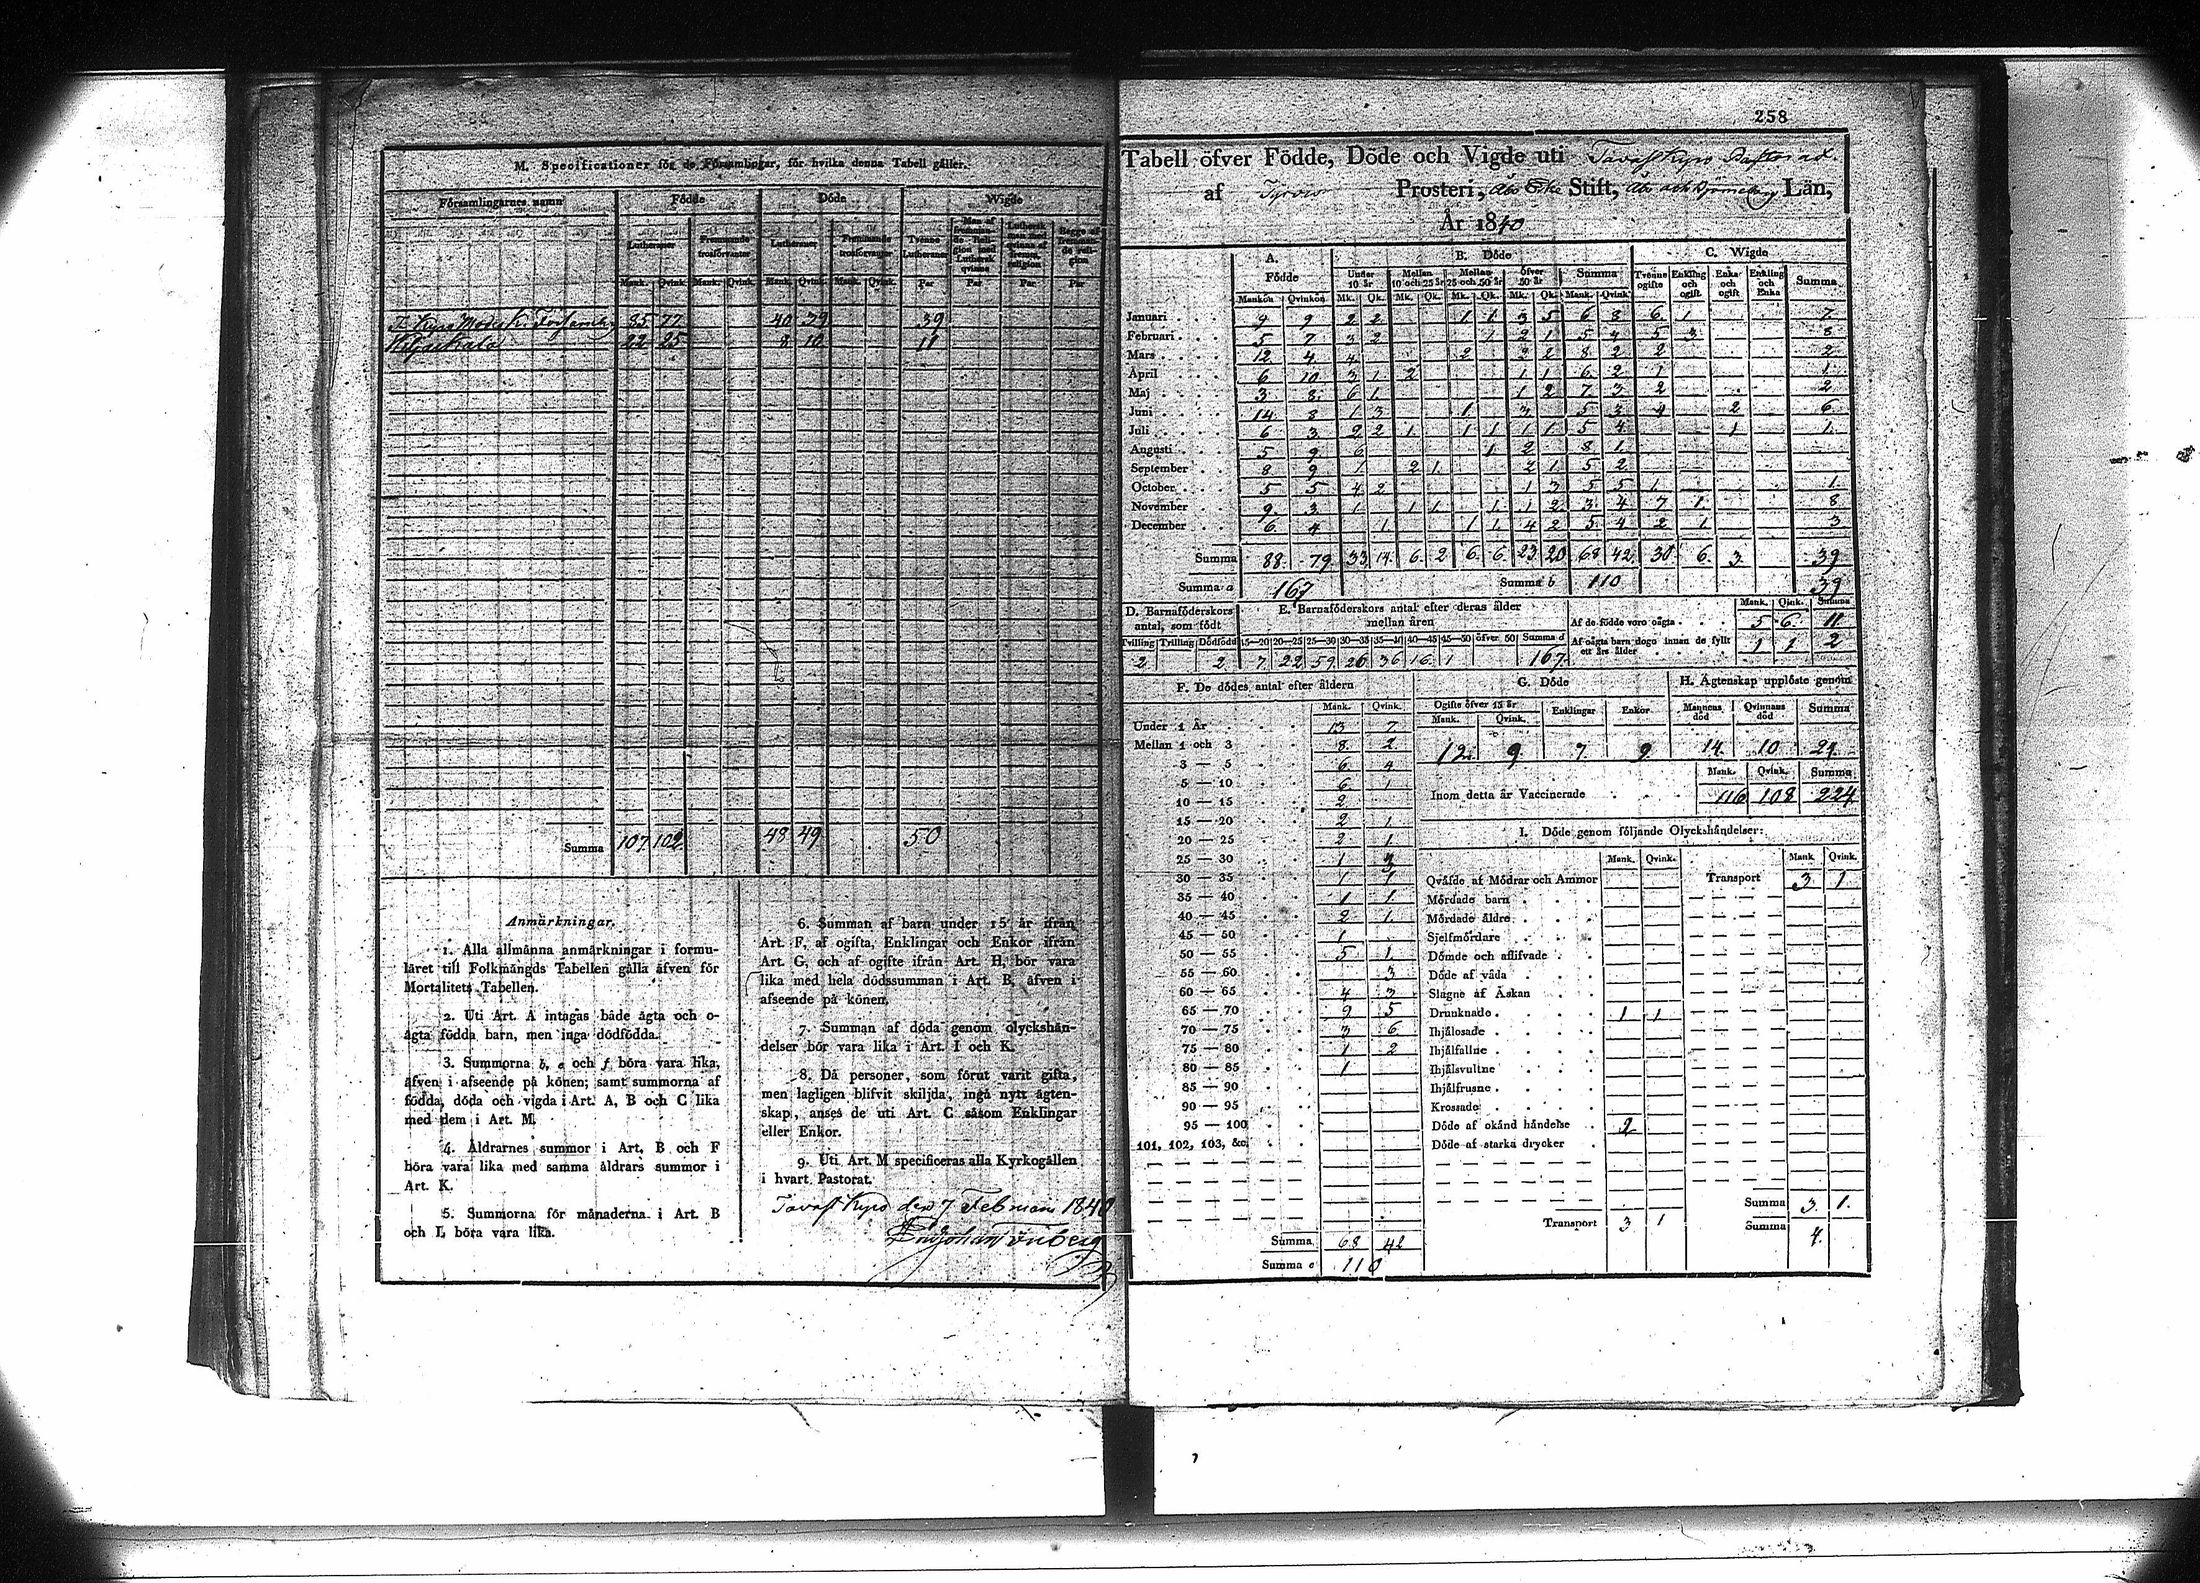 M. Specificationer för de Församlingar, för hvilka denna Tabell gäller.
Församlingarnes namn Födde Döde Wigde
Lutheraner Främmande trosförvanter Lutheraner Främmande trosförvanter Tvenne Lutheraner Man af främmande Religion med Luthersk qvinna Luthersk man med qvinna af främm. religion Begge af främmande religion
Mank. Qvink. Mank. Qvink. Mank. Qvink. Mank. Qvink. Par Par Par Par
T. Kyro Moderk. 85 77 40 39 39
22 25 8 10 11
Summa 107 102 48 49 50
Anmärkningar.
1. Alla allmänna anmärkningar i formu-
läret till Folkmängds Tabellen gälla äfven för
Mortalitets Tabellen.
2. Uti Art. A intagas både ägta och o-
ägta födda barn, men inga dödfödda.
3. Summorna b, e och f böra vara lika,
äfven i afseende på könen; samt summorna af
födda, döda och vigda i Art. A, B och C lika
med dem i Art. M.
4. Åldrarnes summor i Art. B och F
böra vara lika med samma åldrars summor i
Art. K.
5. Summorna för månaderna i Art. B
och L böra vara lika.
6. Summan af barn under 15 år ifrån
Art. F, af ogifta, Enklingar och Enkor ifrån
Art. G, och af ogifte ifrån Art. H, bör vara
lika med hela dödssumman i Art. B, äfven i
afseende på könen.
7. Summan af döda genom olyckshän-
delser bör vara lika i Art. I och K.
8. Då personer, som förut varit gifta,
men lagligen blifvit skiljda, ingå nytt ägten-
skap, anses de uti Art. C såsom Enklingar
eller Enkor.
9. Uti Art. M specificeras alla Kyrkogällen
i hvart Pastorat.
Tavast Kyro den 7 Februari 1840
258
Tabell öfver Födde, Döde och Vigde uti Tavast Kyro Pastorat
af Tyrvis Prosteri, Åbo Erke Stift, Åbo och Björneborg Län,
År 1840
A. Födde B. Döde C. Wigde
Under 10 år Mellan 10 och 25 år Mellan 25 och 50 år Öfver 50 år Summa Tvenne ogifte Enkling och ogift Enka och ogift Enkling och Enka Summa
Mankön Qvinkön Mk. Qk. Mk. Qk. Mk. Qk. Mk. Qk. Mank. Qvink.
Januari 9 9 2 2 1 1 3 5 6 8 6 1 7
Februari 5 7 3 2 1 2 1 5 4 5 3 8
Mars 12 4 4 2 2 2 8 2 2 2
April 6 10 3 1 2 1 1 6 2 1 1
Maj 3 8 6 1 1 2 7 3 2 2
Juni 14 8 1 3 1 3 5 3 4 2 6
Juli 6 3 2 2 1 1 1 1 1 5 4 1 1
Augusti 5 9 6 1 2 8 1
September 8 9 1 2 1 2 1 5 2
October 5 5 4 2 1 3 5 5 1 1
November 9 3 1 1 1 1 1 2 3 4 7 1 8
December 6 4 1 1 1 4 2 5 4 2 1 3
Summa 88 79 33 14 6 2 6 6 23 20 68 42 30 6 3 39
Summa a 167 Summa b 110 39
D. Barnaföderskors antal, som födt E. Barnaföderskors antal efter deras ålder mellan åren Mank. Qink. Summa
Af de födde voro oägta 5 6 11
Tvilling Trilling Dödfödd 15—20 20—25 25—30 30—35 35—40 40—45 45—50 öfver 50 Summa d
Af oägta barn dogo innan de fyllt ett års ålder 1 1 2
2 2 7 22 59 26 36 16 1 167
F. De dödes antal efter åldern
Mank. Qvink.
Under 1 År 13 7
Mellan 1 och 3 8 2
3 — 5 6 4
5 — 10 6 1
10 — 15 2
15 — 20 2 1
20 — 25 2 1
25 — 30 1
30 — 35 1 1
35 — 40 1 1
40 — 45 2 1
45 — 50 1
50 — 55 5 1
55 — 60 3
60 — 65 4 3
65 — 70 9 5
70 — 75 3 6
75 — 80 1 2
80 — 85 1
85 — 90
90 — 95
95 — 100
101, 102, 103, &c.
Summa 68 42
Summa e 110
G. Döde H. Ägtenskap upplöste genom
Ogifte öfver 15 år Enklingar Enkor Mannens död Qvinnans död Summa
Mank. Qvink.
12 9 7 9 14 10 24
Mank. Qvink. Summa
Inom detta år Vaccinerade 116 108 224
I. Döde genom följande Olyckshändelser:
Mank. Qvink. Mank. Qvink.
Qväfde af Mödrar och Ammor Transport 3 1
Mördade barn
Mördade äldre
Sjelfmördare
Dömde och aflifvade
Döde af våda
Slagne af Åskan
Drunknade 1 1
Ihjälosade
Ihjälfallne
Ihjälsvultne
Ihjälfrusne
Krossade
Döde af okänd händelse 2
Döde af starka drycker
Summa 3 1
Transport 3 1 Summa 4